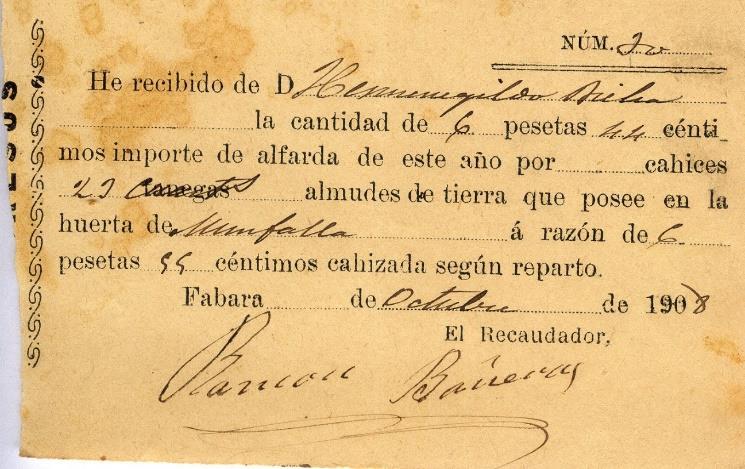 NÚM. 20
He recibido de D Hermenegildo
la cantidad de 6 pesetas 44 cénti
mos importe de alfarda de este año por cahices
23 almudes de tierra que posee en la
huerta de á razón de 6
pesetas 55 céntimos cahizada según reparto.
Fabara de Octubre de 1908
El Recaudador,
Ramon